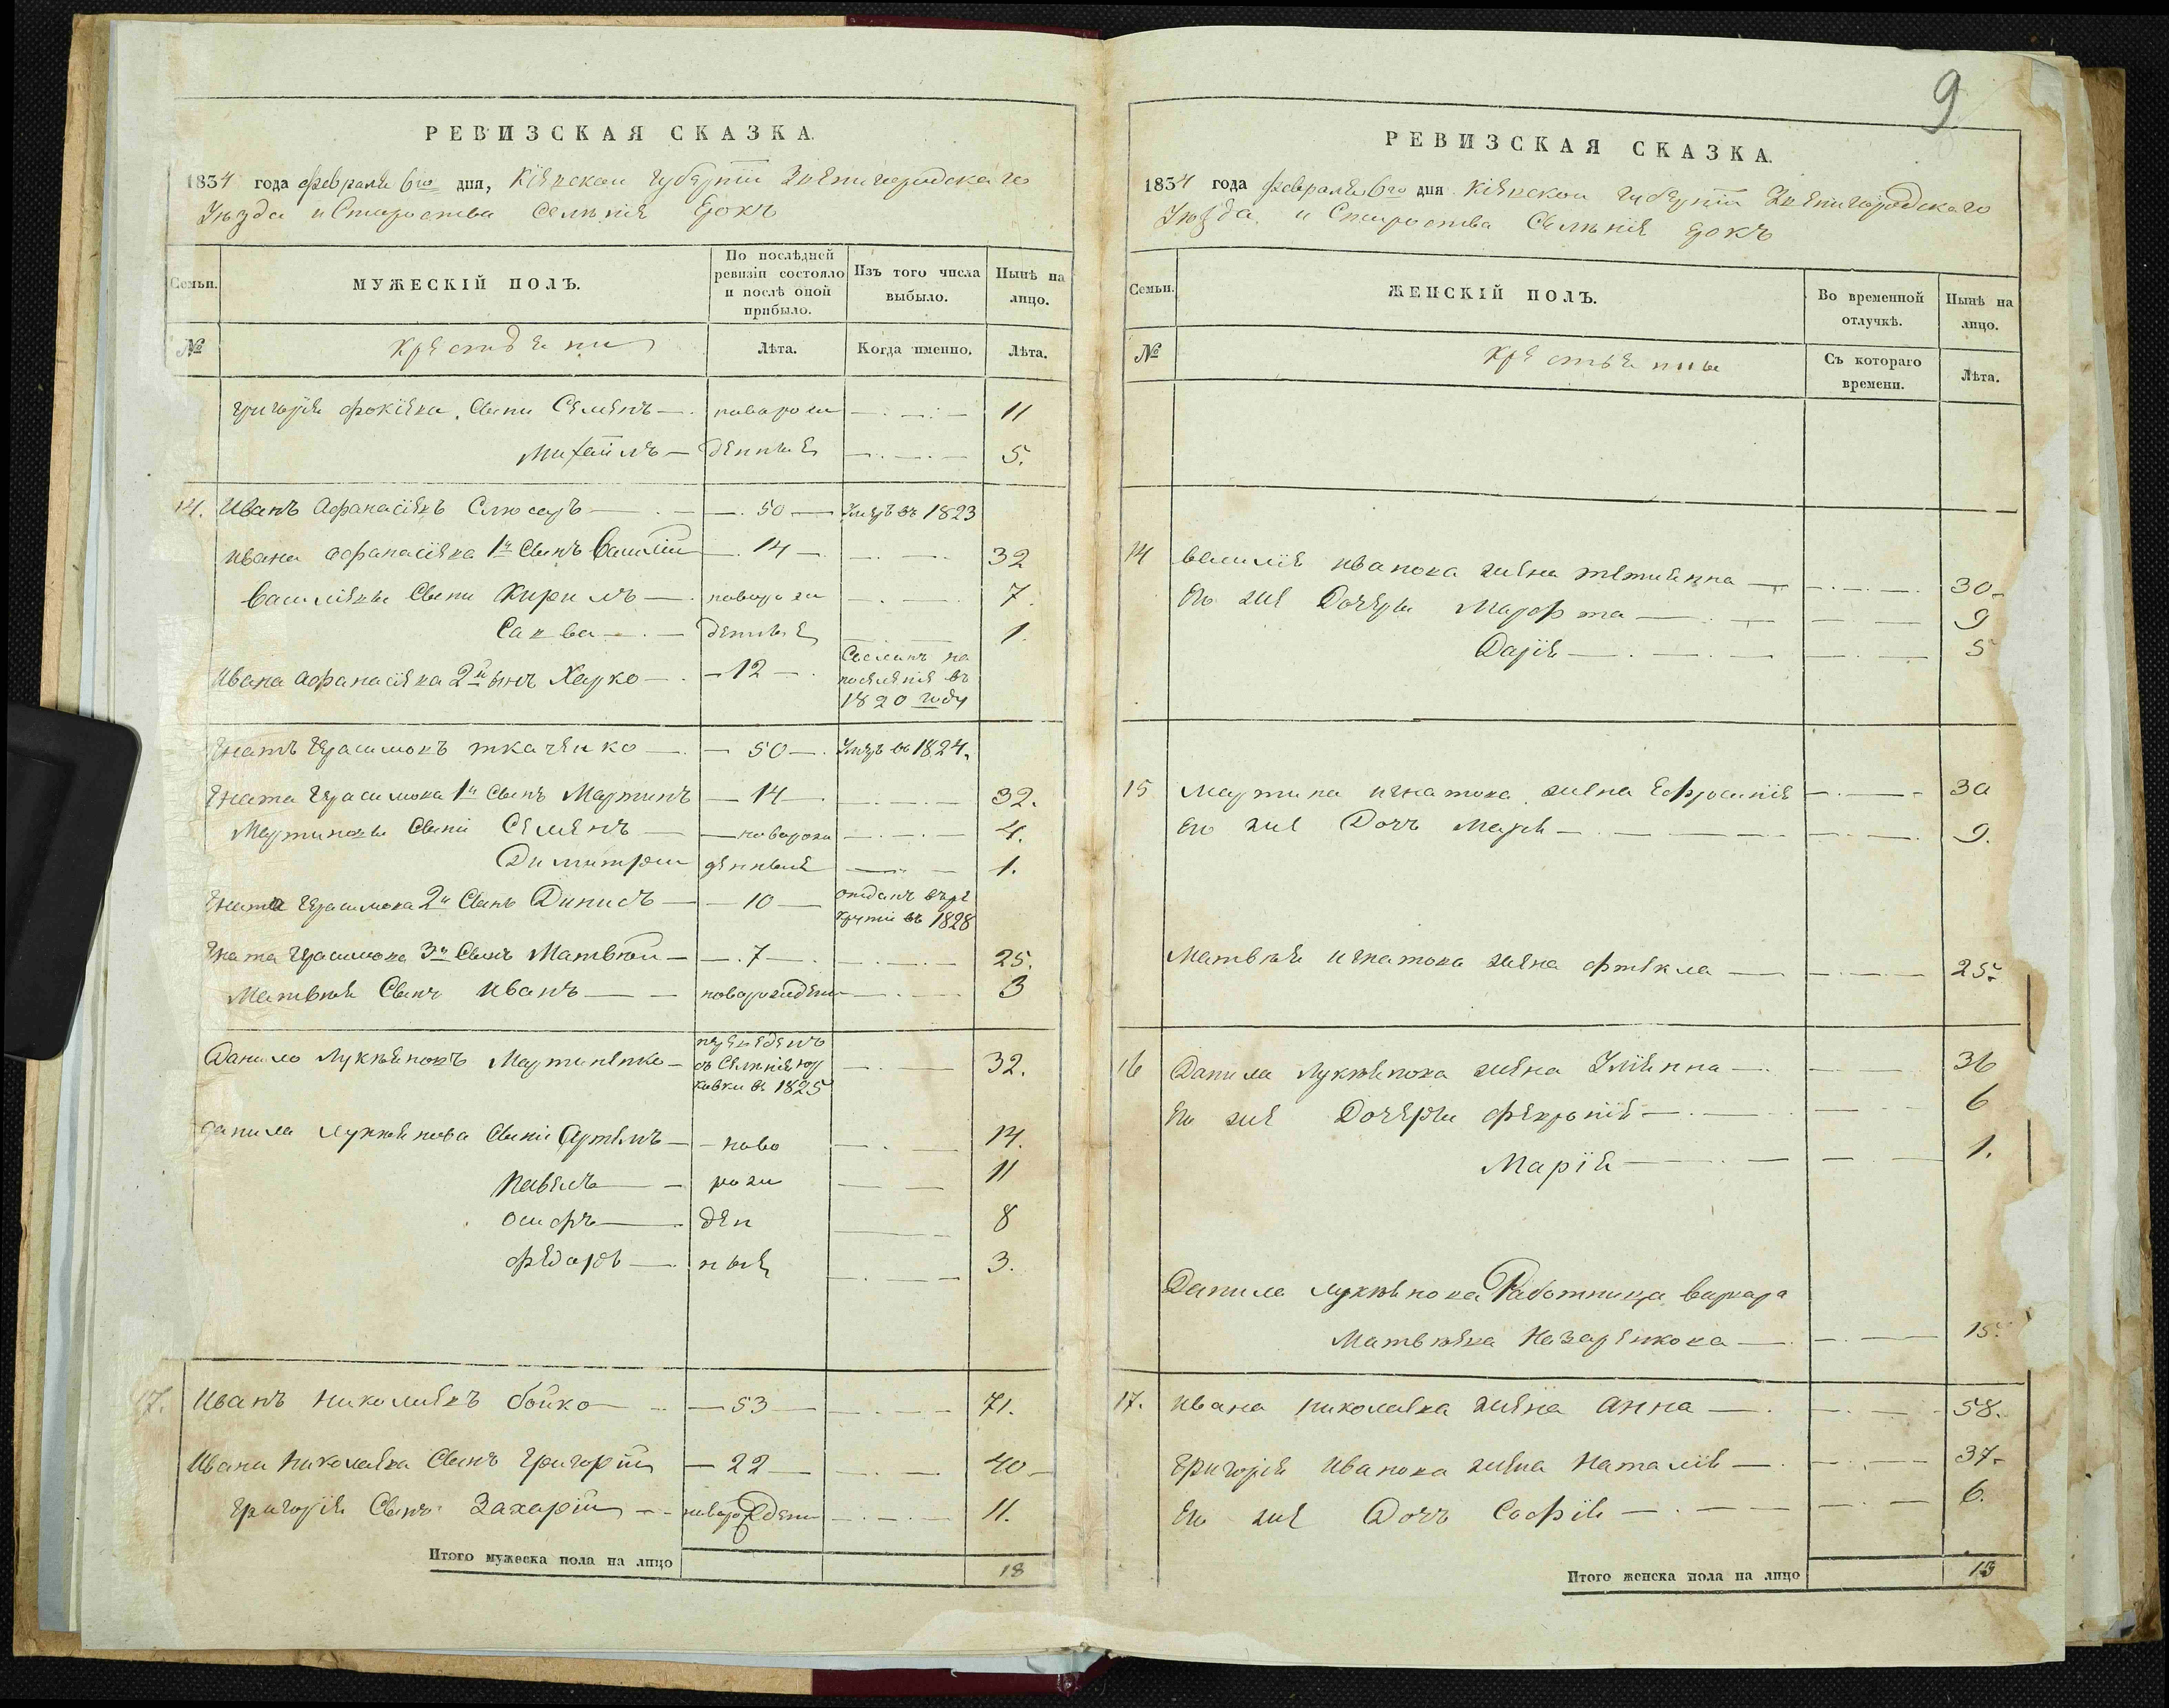 9
РЕВИЗСКАЯ СКАЗКА.
1834 года февраля 6го дня, Кіевской губерніи Звенигородскаго
Уѣзда и Староства Селенія
Семьи.
МУЖЕСКІЙ ПОЛЪ.
По послѣдней ревизіи состояло и послѣ оной прибыло.
Изъ того числа выбыло.
Нынѣ на лицо.
№
Крестьяни
Лѣта.
Когда именно.
Лѣта.
Григорія Фокіева Сыни Семенъ — новорож 11
Михаилъ — денные 5.
14. Иванъ Афанасіевъ Слюсаръ — 50 — Умеръ въ 1823
Ивана Афанасіева 1й Сынъ Василій — 14 — 32
Василіевы Сыни Кирилъ — новорож 7.
Савва — денные 1.
Ивана Афанасіева 2й сынъ Харко — 12 — Сосланъ на
поселеніе въ
1820 году
Гнатъ Герасимовъ Ткаченко — 50 — Умеръ въ 1824.
Гната Герасимова 1й Сынъ Мартинъ — 14 — 32.
Мартиновы Сыни Семенъ — новорож 4.
Димитрій денные 1.
Гната Герасимова 2й Сынъ Динисъ — 10 — отданъ въ ре
круты въ 1828
Гната Герасимова 3й Сынъ Матвѣй — 7 — 25.
Матвѣя Сынъ Иванъ — новорожден 3
Данило Лукяновъ Мартиненко — переведенъ
съ Селенія Юр
ковки въ 1825 32.
Данила Лукянова Сыни Артемъ — ново 14.
Павелъ — рож 11
Осифъ — ден 8
Федоръ — ные 3.
17. Иванъ Николаевъ Бойко — 53 — 71.
Ивана Николаева Сынъ Григорій — 22 — 40
Григорія Сынъ Захарій — новорожден 11.
Итого мужеска пола на лицо 18
РЕВИЗСКАЯ СКАЗКА.
1834 года февраля 6го дня Кіевской губерніи Звенигородскаго
Уѣзда и Староства Селенія
Семьи.
ЖЕНСКІЙ ПОЛЪ.
Во временной отлучкѣ.
Нынѣ на лицо.
№
Крестьянины
Съ котораго времени.
Лѣта.
14 Василія Иванова жена Тетиянна — 30
Его же Дочеры Марфта — 9
Дарія — 5
15 Мартина Игнатова жена Ефросинія — 30
Его же Дочъ Марія — 9.
Матвѣя Игнатова жена Фтекла — 25.
16 Данила Лукянова жена Уліянна — 36
Его же Дочеры Февронія — 6
Марія — 1.
Данила Лукянова Работница Варвара
Матвѣева Назаренкова — 15.
17. Ивана Николаева жена Анна — 58.
Григорія Иванова жена Наталія — 37.
Его же Дочъ Софія — 6.
Итого женска пола на лицо 13